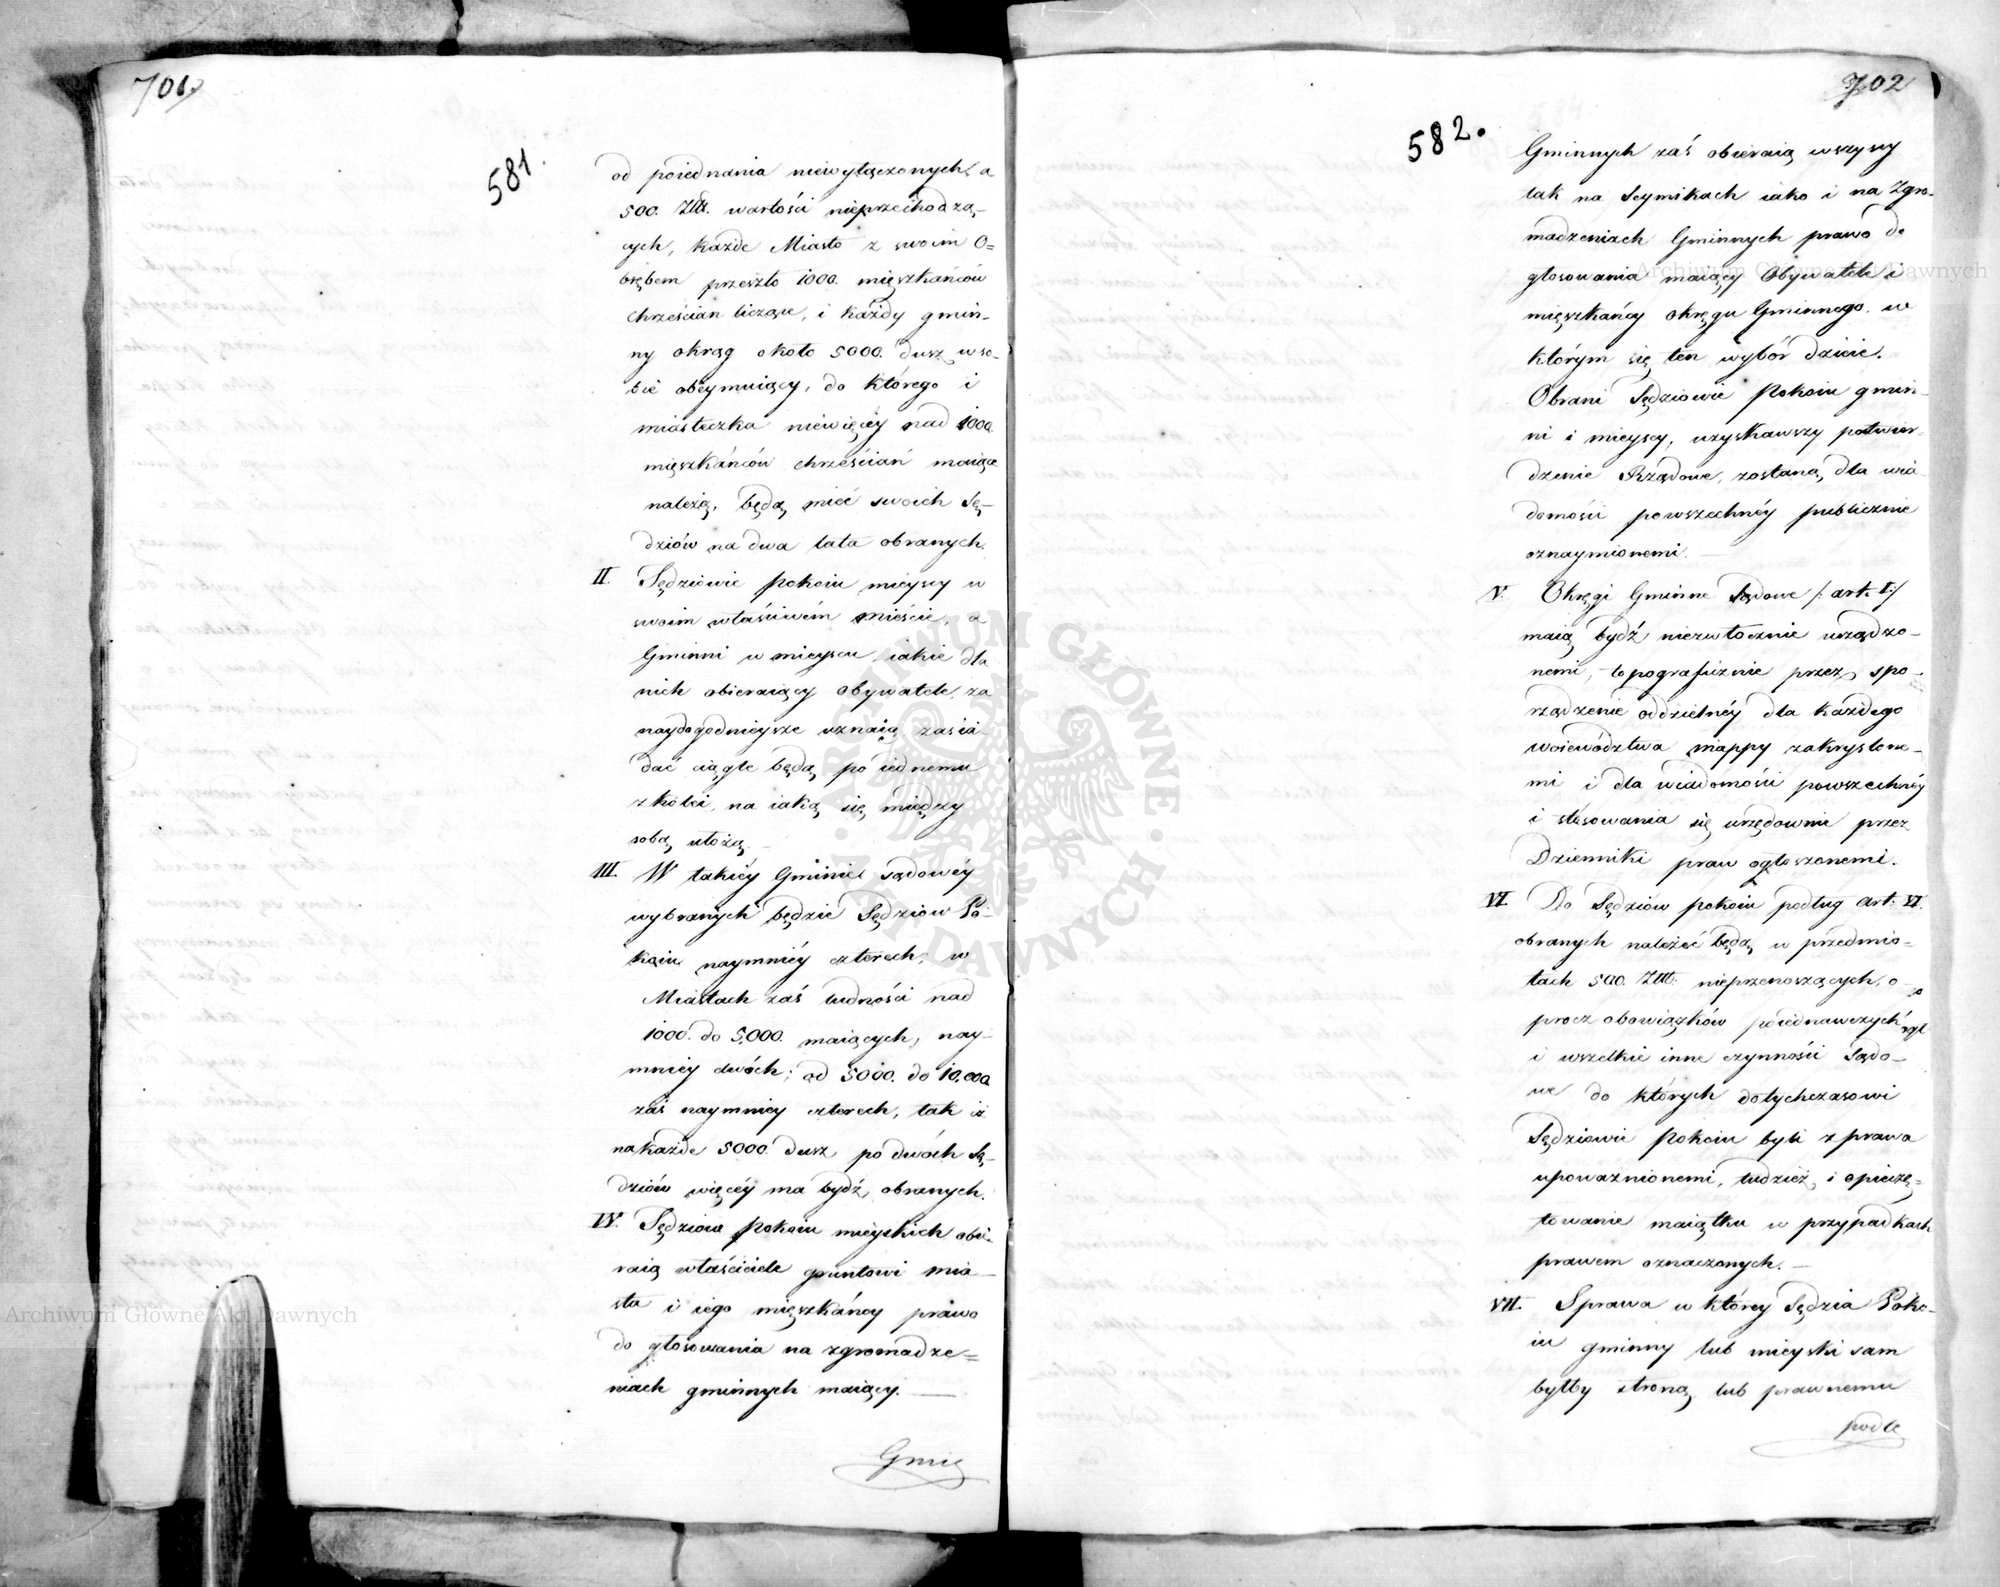 701
581.
od poiednania niewyłączonych, a
500. Złt. wartości nieprzechodzą-
cych, każde Miasto z swoim O=
brębem przeszło 1000. mięszkańców
chrześcian liczące, i każdy gmin-
ny okrąg około 5000. dusz w so-
bie obeymuiący, do którego i
miasteczka niewięcéy nad 1000
mięszkańców chrześcián maiące
należą, będą mieć swoich Sę-
dziów na dwa lata obranych.
II. Sędziowie Pokoiu mieyscy w
swoim właściwém mieście, a
Gminni w mieyscu, iakie dla
nich obieraiący obywatele, za
naydogodnieysze uznaią zasia-
dać ciągle będą, po iednemu
z kolei, na iaką się między
sobą ułożą. –
III. W takiéy Gminie sądowéy
wybranych będzie Sędziów Po-
koiu naymniéy czterech, w
Miastach zaś ludności nad
1000. do 5,000. maiących, nay-
mniéy dwóch; od 5000. do 10,000
zaś naymniéy czterech, tak iż
na każde 5000. dusz po dwóch Sę-
dziów więcéy ma bydź obranych.
IV. Sędziów Pokoiu mieyskich obie-
raią właściciele gruntowi mia-
sta i iego mięszkańcy prawo
do głosowania na zgromadze=
niach gminnych maiący. —
Gmin
702
582.
Gminnych zaś obieraią wszyscy
tak na Seymikach iako i na Zgro-
madzeniach Gminnych prawo do
głosowania maiący Obywatele i
mięszkańcy okręgu Gminnego. w
którym się ten wybór dzieie.
Obrani Sędziowie Pokoiu gmin-
ni i mieyscy, uzyskawszy potwier-
dzenie Rządowe, zostaną, dla wia-
domości powszechnéy publicznie
oznaymionemi. —
V. Okręgi Gminne Sądowe /: art. I :/
maią bydź niezwłocznie urządzo-
nemi, topograficznie przez spo-
rządzenie oddzielnéy dla każdego
województwa mappy zakryslone-
mi i dla wiadomości powszechnéy
i stósowania się urzędownie przez
Dzienniki praw ogłoszonemi.
VI. Do Sędziów pokoiu podług art: VI.
obranych należeć będą w przedmio-
tach 500. Złt. nieprzenoszących, o-
prócz obowiązków poiednawczych
i wszelkie inne czynności Sądo-
we do których dotychczasowi
Sędziowie Pokoiu byli z prawa
upoważnionemi, tudzież i opieczę=
towanie maiątku w przypadkach
prawem oznaczonych. —
VII. Sprawa w któréy Sędzia Poko-
iu gminny lub mieyski sam
byłby stroną, lub prawnemu
podle
Archiwum Główne Akt Dawnych
Archiwum Główne Akt Dawnych
ARCHIWUM GŁÓWNE · AKT DAWNYCH ·